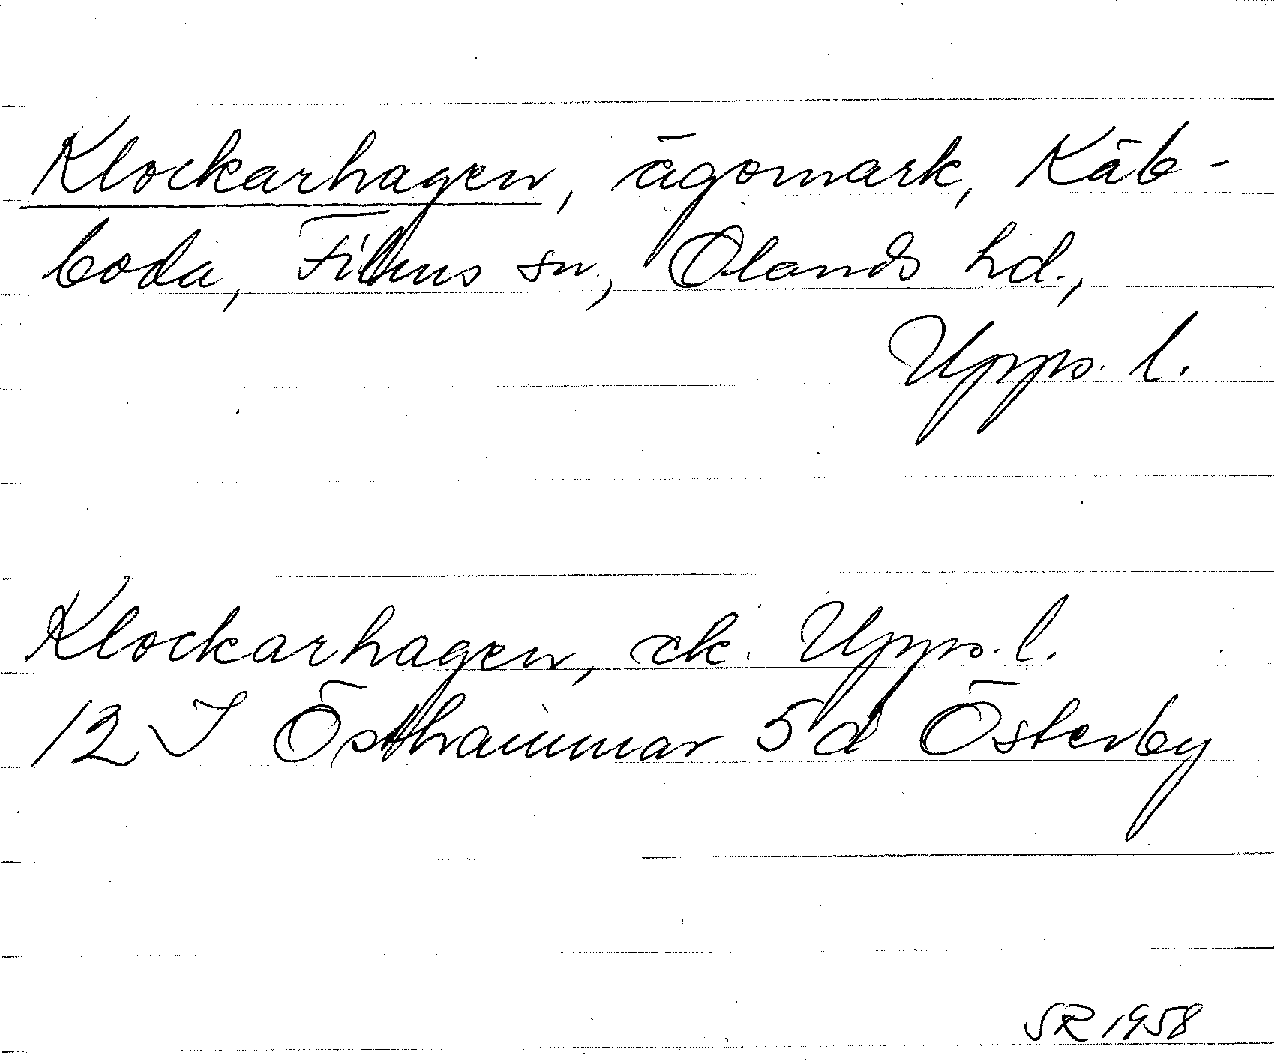 Klockarhagen, ägomark, Käb-
boda, Films sn, Olands hd.,
Upps. l.
Klockarhagen, ek. Upps. l.
12 I Östhammar 5d Österby
SR 1958